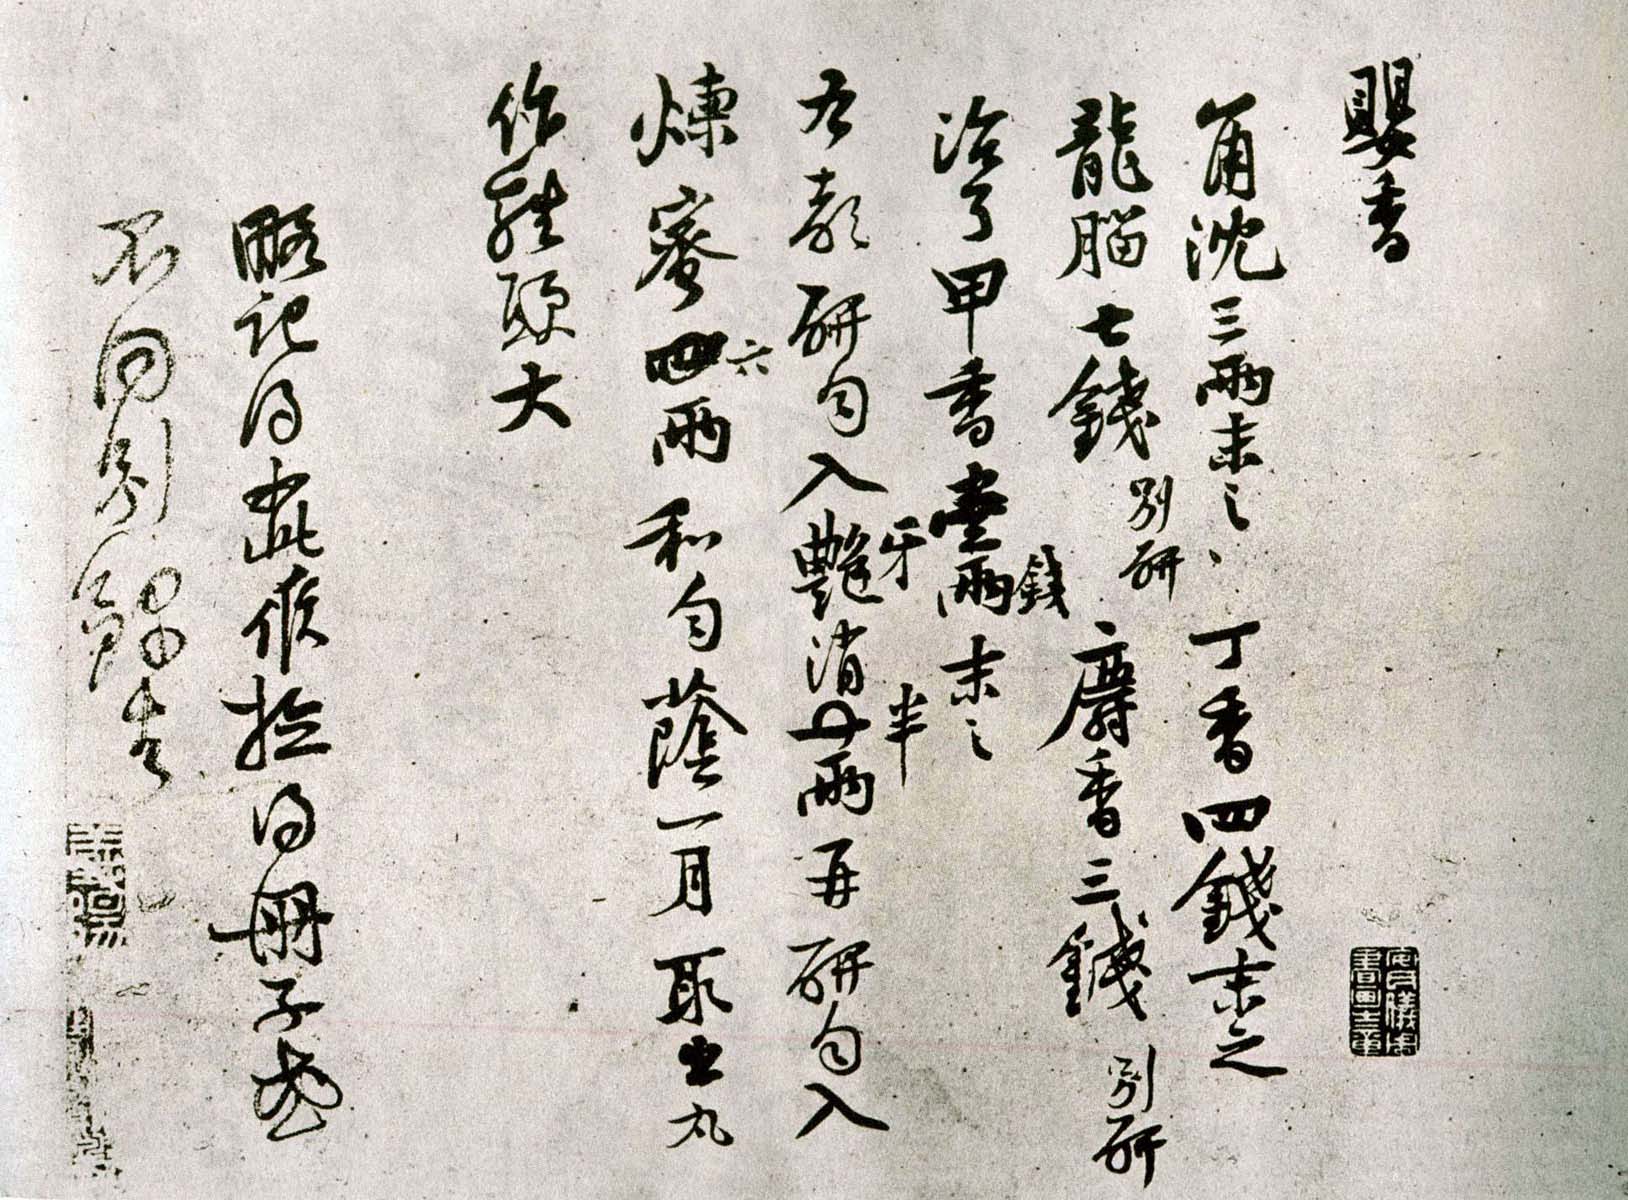 嬰香
角沈三兩末之、丁香四錢末之
龍腦七錢別研麝香三錢別研
治了甲香壹兩錢末之
右都研勻入艷牙消半兩再研勻入
煉蜜四六兩和勻蔭一月取出丸
作雞頭大
略記得如此候撿得冊子或
不同別錄去